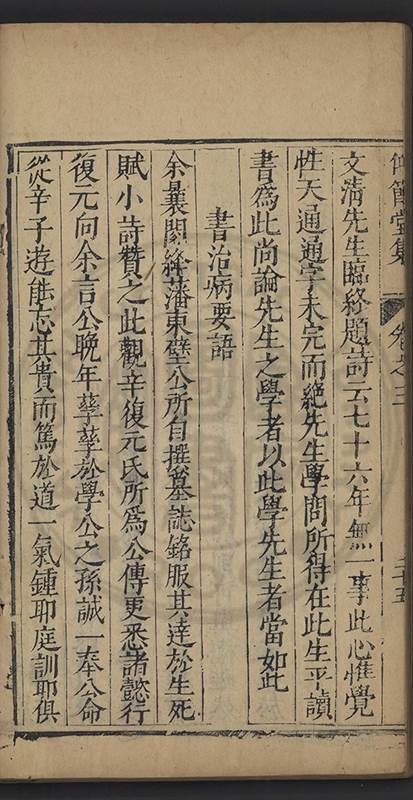 仰節堂集　卷之三　二十五
文清先生臨終題詩云七十六年無一事此心惟覺
性天通通字未完而絕先生學問所得在此生平讀
書爲此尚論先生之學者以此學先生者當如此
書治病要語
余曩閱絳藩東壁公所自撰墓誌銘服其達於生死
賦小詩贊之此觀辛復元氏所爲公傳更悉諸懿行
復元向余言公晚年孳孳於學公之孫誠一奉公命
從辛子遊能忘其貴而篤於道一氣鍾耶庭訓耶俱